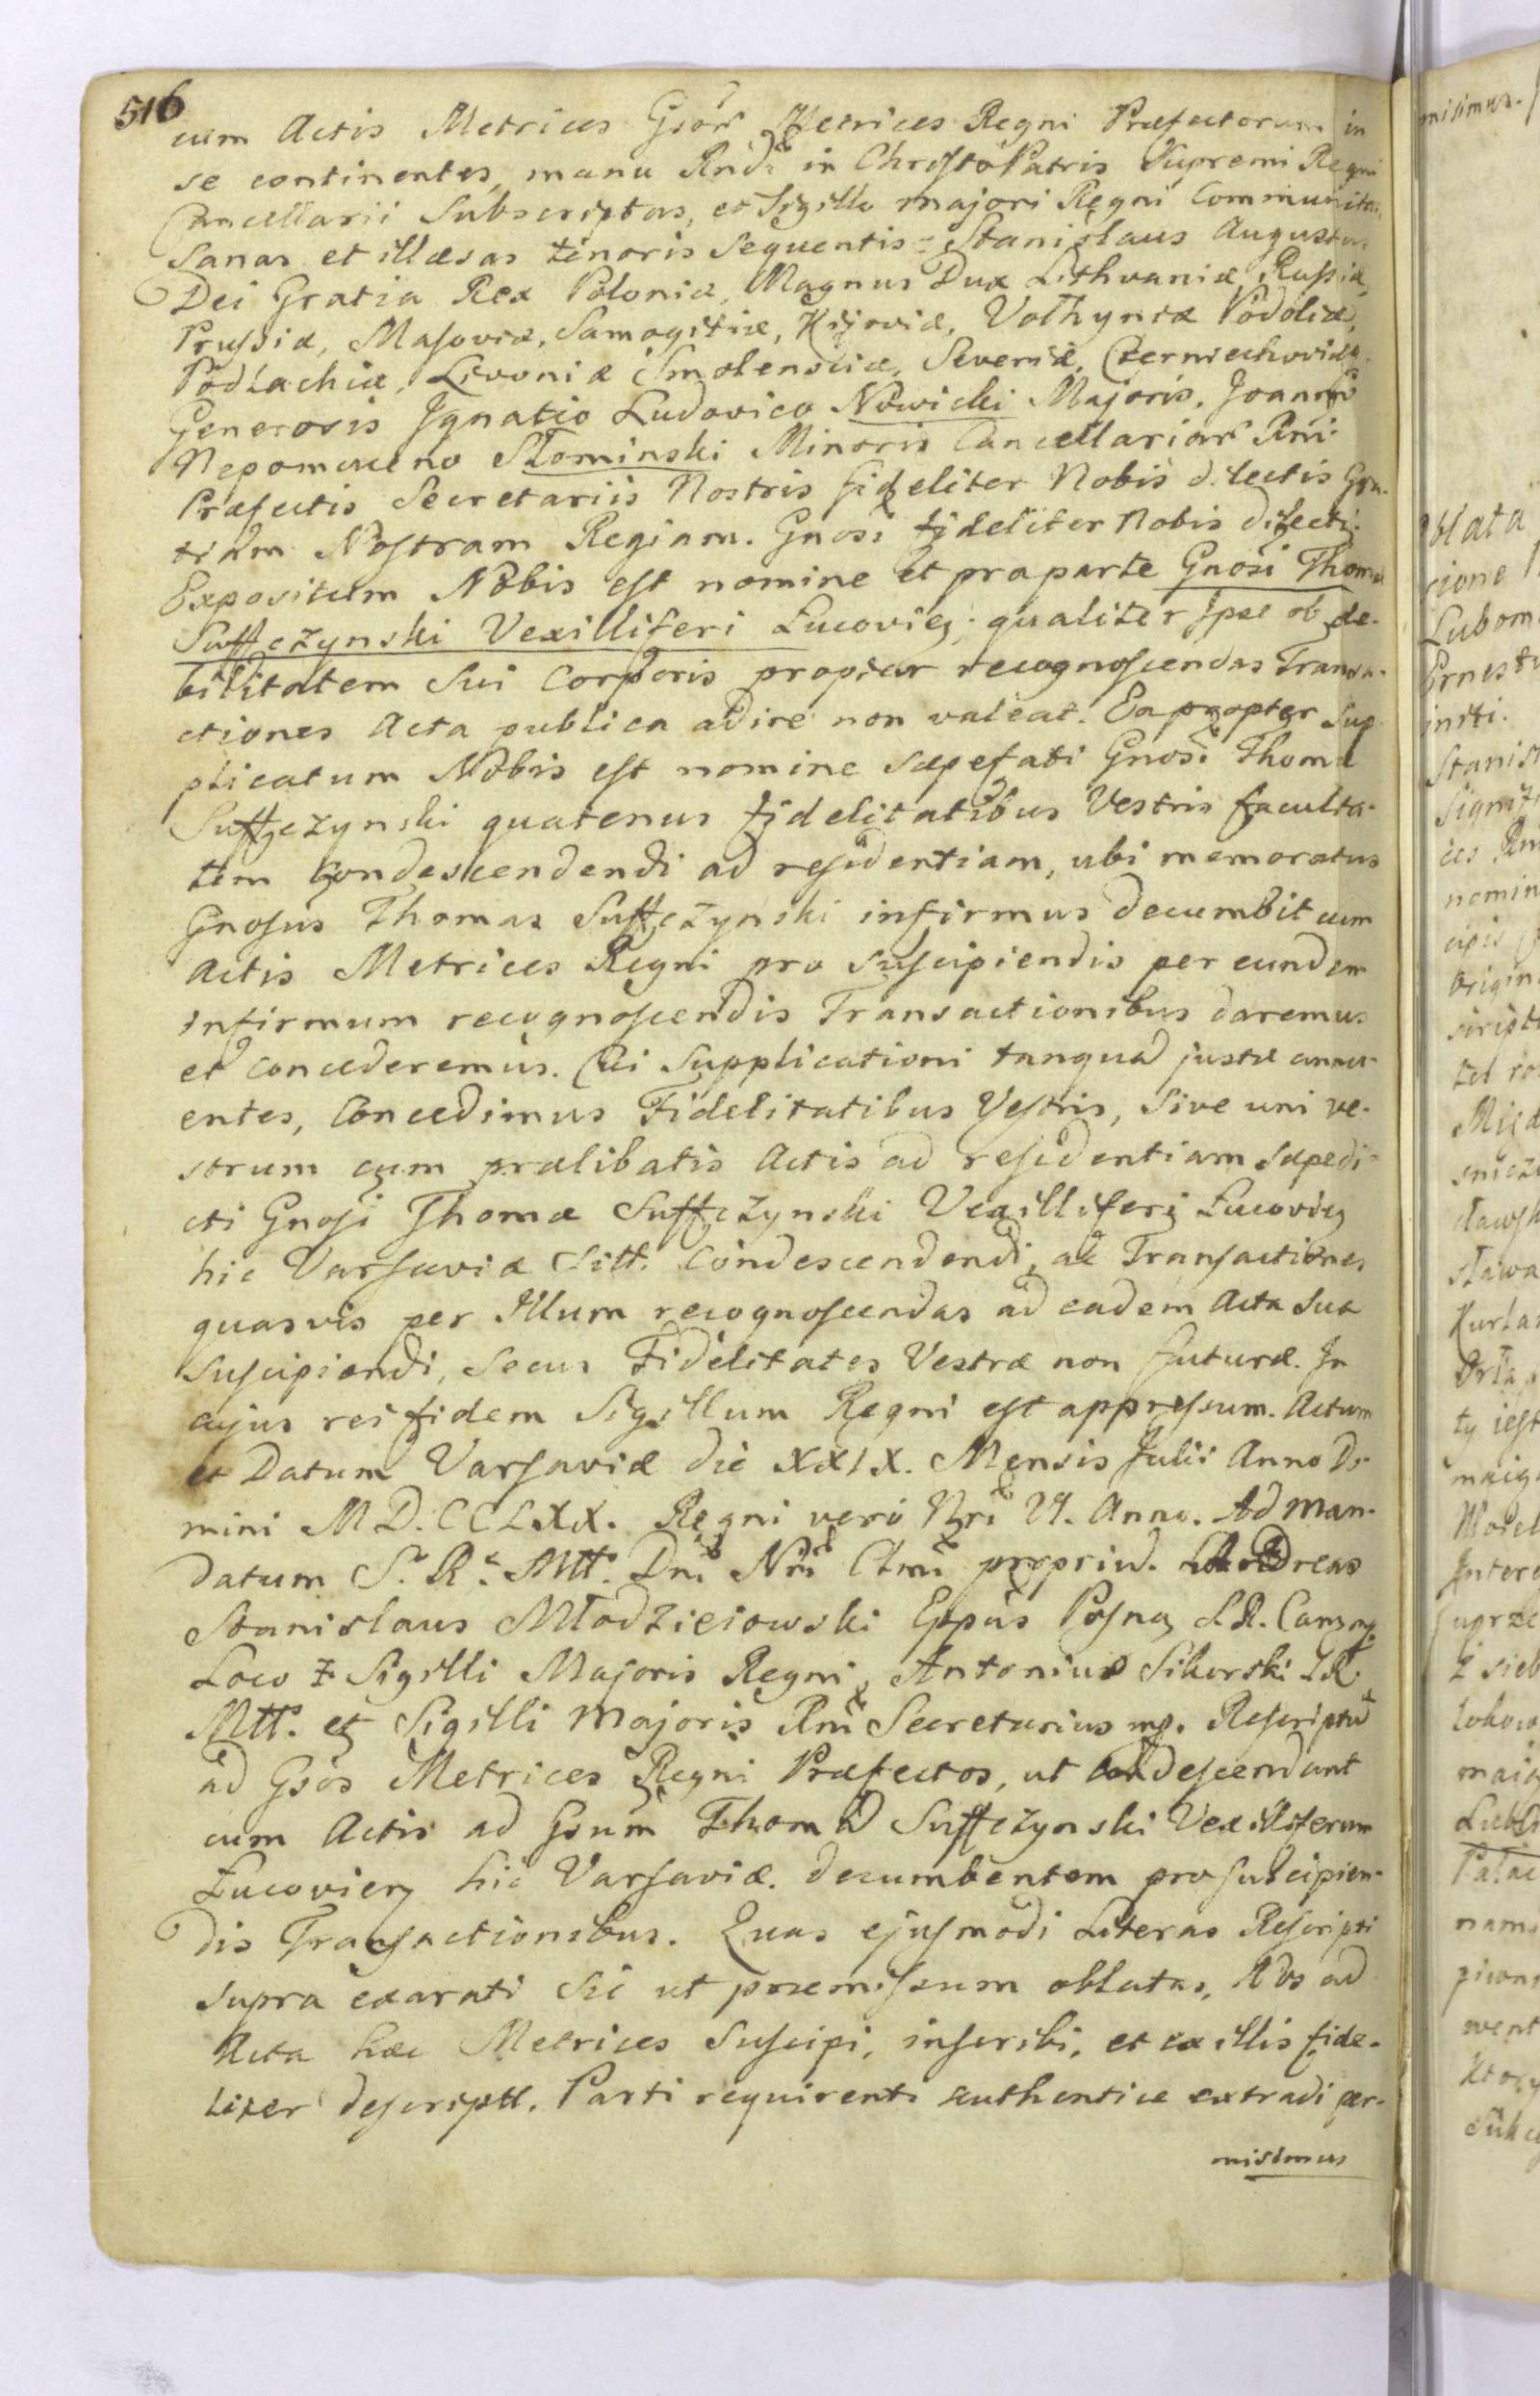 516
cum Actis Metrices Gsor̃ Metrices Regni Præfectorum in
se continentes, manu Rndi in Christo Patris Supremi Regni
Cancellarii Subscriptas, et Sigillo majori Regni Communitas,
Sanas et illæsas tenoris Sequentis = Stanislaus Augustus
Dei Gratia Rex Poloniæ, Magnus Dux Lithvaniæ, Russiæ,
Prussiæ, Masoviæ, Samogitiæ, Kijoviæ, Volhyniæ Podoliæ,
Podlachiæ, Livoniæ Smolensciæ, Severiæ, Czerniechoviæq
Generosis Ignatio Ludovico Nowicki Majoris, Joanni
Nepomuceno Słominski Minoris Cancellariar̃ Rni
Præfectis Secretariis Nostris fideliter Nobis dilectis Gra-
tiam Nostram Regiam. Gnosi fideliter Nobis dilecti.
Expositum Nobis est nomine et pro parte Gnosi Thomæ
Suffczynski Vexilliferi Lucovien; qualiter Ipse ob de-
bilitatem Sui Corporis propter recognoscendas Transa-
ctiones Acta publica adire non valeat. Eapropter Sup-
plicatum Nobis est nomine sæpefati Gnosi Thomæ
Suffczynski quatenus fidelitatibus Vestris faculta-
tem Condescendendi ad residentiam, ubi memoratus
Gnosus Thomas Suffczynski infirmus decumbit cum
Actis Metrices Regni pro suscipiendis per eundem
infirmum recognoscendis Transactionibus daremus
et concederemus. Cui Supplicationi tanquã justæ annu-
entes, Concedimus Fidelitatibus Vestris, Sive uni ve-
strum cum prælibatis Actis ad residentiam Sæpedi-
cti Gnosi Thomæ Suffczynski Vexilliferi Lucovien
hic Varsaviæ Sitt. Condescendendi, ac Transactiones
quasvis per Illum recognoscendas ad eadem Acta Sua
Suscipiendi, Secus Fidelitates Vestræ non futuræ. In
cujus rei fidem Sigillum Regni est appressum. Actum
et Datum Varsaviæ die XXIX. Mensis Julii Anno Do-
mini M D. CCLXX. Regni vero Nri VI. Anno. Ad Man-
datum S. R. Mtt. Dni Nri Clmi propriũ. Andreas
Stanislaus Młodzieiowski Eppus Posna, S. R. Canz mp.
Loco + Sigilli Majoris Regni, Antonius Sikorski S R
Mtt. et Sigilli Majoris Rni Secretarius mp. Rescriptũ
ad Gsos Metrices Regni Præfectos, ut condescendant
cum Actis ad Gsum Thomã Suffczynski Vexilliferum
Lucovien hic Varsaviæ decumbentem pro suscipien-
dis Transactionibus. Quas ejusmodi Literas Rescripti
supra exarati sic ut præmissum oblatas, Nos ad
Acta hæc Metrices Suscipi, inscribi, et ex illis fide-
liter descriptt. Parti requirenti authentice extradi per-
misimus
misimus.
Oblata
Lubom
Ernestu
insti.
Stanisł
nomin
origin
script
Kurlan
ty iest
z sieb
maią
Pałac